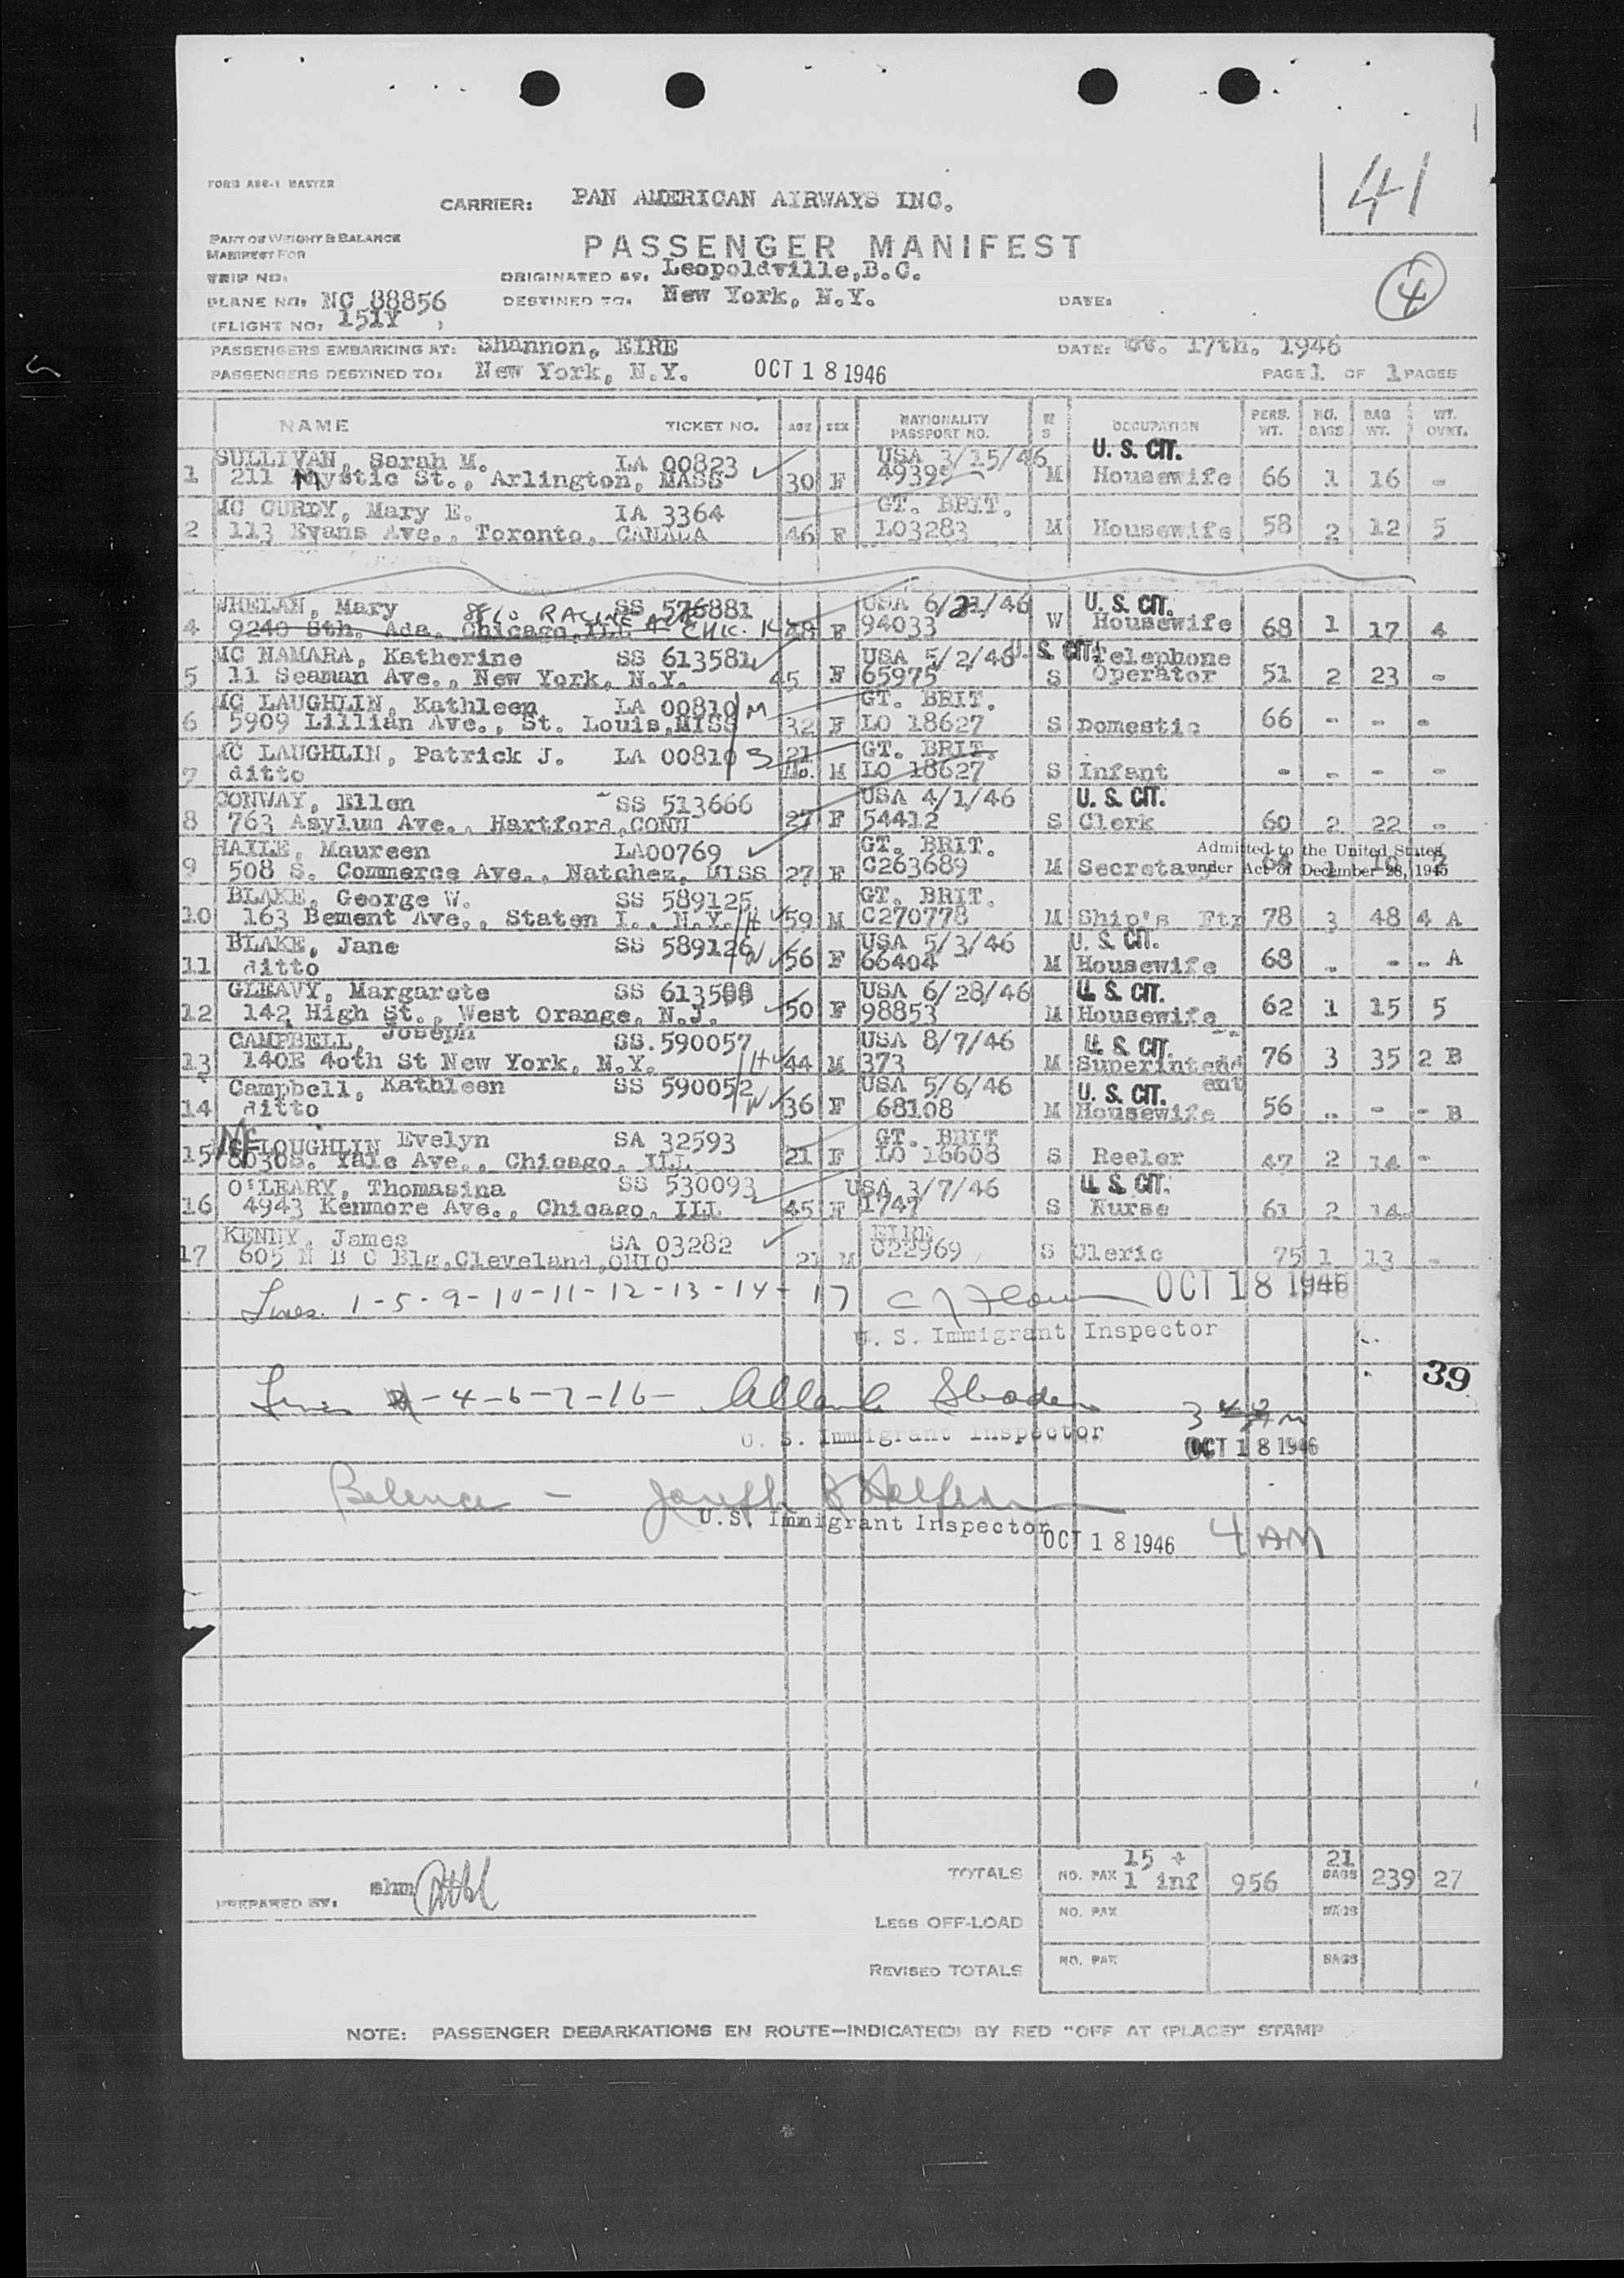 41
FORM ABC-1 MASTER
CARRIER: PAN AMERICAN AIRWAYS INC.
PART OF WEIGHT & BALANCE
MANIFEST FOR
PASSENGER MANIFEST
4
TRIP NO:
ORIGINATED BY: Leopoldville, B.C.
PLANE NO: NC 88856
DESTINED TO: New York, N.Y.
DATE:
(FLIGHT NO: 151Y )
PASSENGERS EMBARKING AT: Shannon, EIRE
DATE: 17th. 1946
PASSENGERS DESTINED TO: New York, N.Y. OCT 18 1946
PAGE 1 OF 1 PAGES
NAME TICKET NO. AGE SEX NATIONALITY PASSPORT NO. M S OCCUPATION PERS. WT. NO. BAGS BAG WT. WT. OVWT.
SULLIVAN, Sarah M. LA 00823 USA 3/15/46 U. S. CIT.
1 211 Mystic St., Arlington, MASS 30 F 49395 M Housewife 66 1 16 -
MC CURDY, Mary E. IA 3364 GT. BRIT.
2 113 Evans Ave., Toronto, CANADA 46 F LO3283 M Housewife 58 2 12 5
WHELAN, Mary SS 576881 USA 6/21/46 U. S. CIT.
8F10 RACINE AVE CHIC.
4 9240 Sth. Ada, Chicago, ILL 48 F 94033 W Housewife 68 1 17 4
MC NAMARA, Katherine SS 613581 USA 5/2/46 U. S. CIT. Telephone
5 11 Seaman Ave., New York, N.Y. 45 F 65975 S Operator 51 2 23 -
MC LAUGHLIN, Kathleen LA 00810 M GT. BRIT.
6 5909 Lillian Ave., St. Louis, MISS 32 F LO 18627 S Domestic 66 - - -
MC LAUGHLIN, Patrick J. LA 00810 S 21 GT. BRIT.
7 ditto Mo. M LO 18627 S Infant - - - -
CONWAY, Ellen SS 513666 USA 4/1/46 U. S. CIT.
8 763 Asylum Ave., Hartford, CONN 27 F 54412 S Clerk 60 2 22 -
HAILE, Maureen LA00769 GT. BRIT. Admitted to the United States
9 508 S. Commerce Ave., Natchez, MISS 27 F C263689 M Secretary under Act of December 28, 1945
BLAKE, George W. SS 589125 GT. BRIT.
10 163 Bement Ave., Staten I., N.Y. H 59 M C270778 M Ship's Ftr 78 3 48 4 A
BLAKE, Jane SS 589126 USA 5/3/46 U. S. CIT.
11 ditto W 56 F 66404 M Housewife 68 - - - A
GLEAVY, Margarete SS 613588 USA 6/28/46 U. S. CIT.
12 142 High St., West Orange, N.J. 50 F 98853 M Housewife 62 1 15 5
CAMPBELL, Joseph SS.590057 USA 8/7/46 U. S. CIT.
13 140E 40th St New York, N.Y. H 44 M 373 M Superintendent 76 3 35 2 B
Campbell, Kathleen SS 590052 USA 5/6/46 U. S. CIT.
14 ditto W 36 F 68108 M Housewife 56 - - - B
Mc LOUGHLIN Evelyn SA 32593 GT. BRIT
15 8630S. Yale Ave., Chicago, ILL 21 F LO 16608 S Reeler 47 2 14 -
O'LEARY, Thomasina SS 530093 USA 3/7/46 U. S. CIT.
16 4943 Kenmore Ave., Chicago, ILL 45 F 1747 S Nurse 61 2 14
KENNY, James SA 03282 EIRE
17 605 N B C Blg, Cleveland, OHIO 21 M 022969 S Cleric 75 1 13 -
Lines 1-5-9-10-11-12-13-14-17 OCT 18 1946
U. S. Immigrant Inspector
39
Lines -4-6-7-16-
U. S. Immigrant Inspector
OCT 18 1946
Balance - Joseph
U.S. Immigrant Inspector OCT 18 1946 4 AM
TOTALS NO. PAX 15 + 1 inf 956 21 BAGS 239 27
PREPARED BY: ehm
LESS OFF-LOAD NO. PAX BAGS
REVISED TOTALS NO. PAX BAGS
NOTE: PASSENGER DEBARKATIONS EN ROUTE—INDICATE(D) BY RED "OFF AT (PLACE)" STAMP